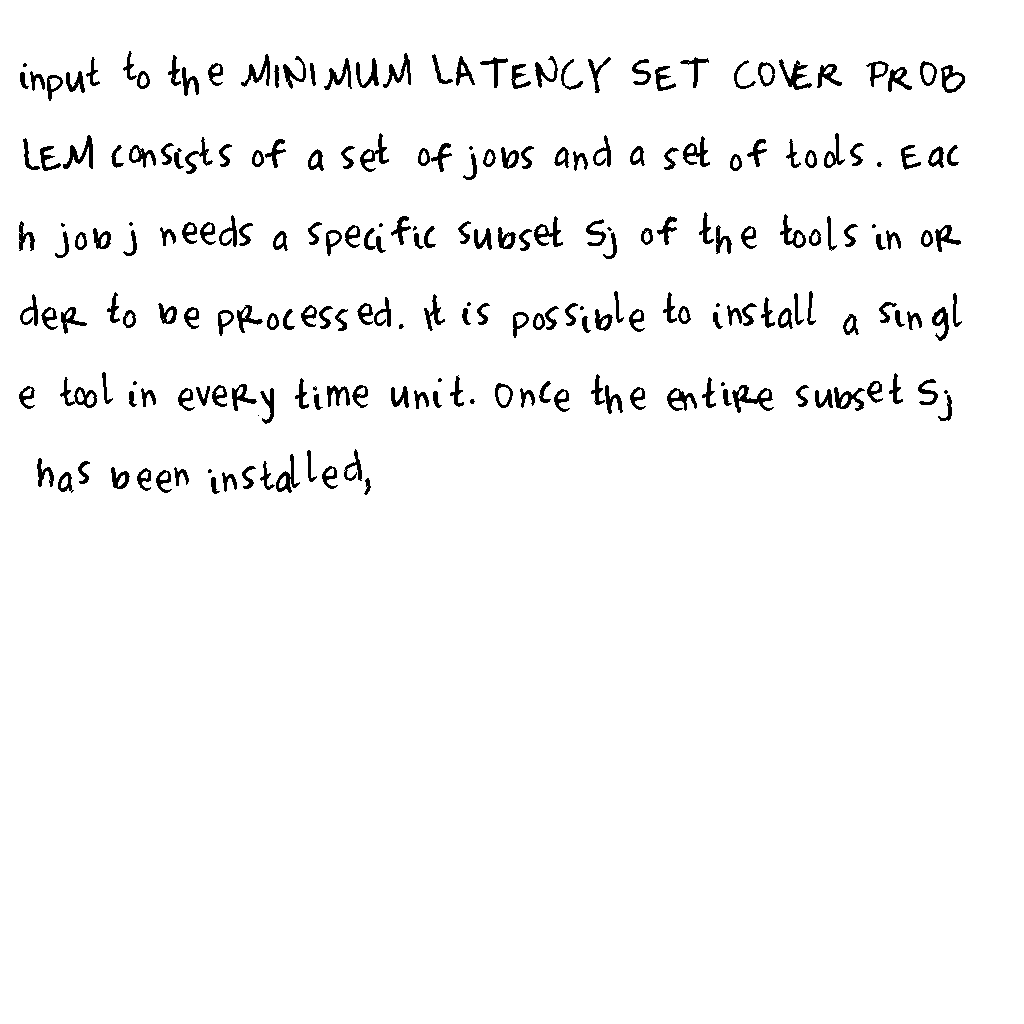 input to the MINIMUM LATENCY SET COVER PROB
LEM consists of a set of jobs and a set of tools. Eac
h job j needs a specific subset Sj of the tools in or
der to be processed. It is possible to install a singl
e tool in every time unit. Once the entire subset Sj
has been installed,